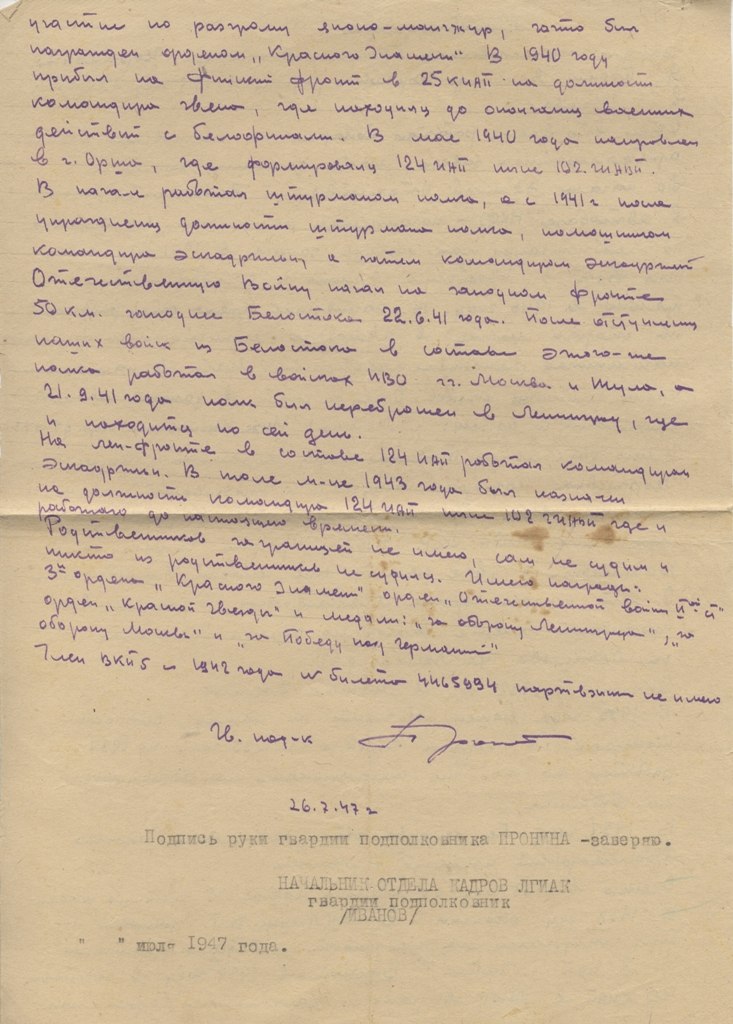 участие по разгрому японо-манчжур, за что был
награжден орденом „Красного Знамени" В 1940 году
прибыл на Финский фронт в 25КИАП на должность
командира звена, где находился до окончания военных
действий с белофинами. В мае 1940 года направлен
в г. Орша, где формировали 124 ИАП ныне 102.ГИАП.
В начале работал штурманом полка, а с 1941 г после
упразднения должности штурмана полка, помощником
командира эскадрильи, а затем командиром эскадрильи
Отечественную Войну начал на западном фронте
50 км. западнее Белостока 22.6.41 года. После отступления
наших войск из Белостока в составе этого-же
полка работал в войсках ПВО гг. Москва и Тула, а
21.9.41 года полк был переброшен в Ленинград, где
и находится по сей день.
На лен-фронте в составе 124 ИАП работал командиром
эскадрильи. В июле м-це 1943 года был назначен
на должность командира 124 ИАП ныне 102 ГИАП где и
работаю до настоящего времени.
Родственников за границей не имею, сам не судим и
никто из родственников не судился. Имею награды:
3 ордена „Красного Знамени" орден „Отечественной войны II ст"
орден „Красной Звезды" и медали: „за оборону Ленинграда", „за
оборону Москвы" и „за Победу над Германией"
Член ВКПб с 1942 года № билета 4465994 партвзысканий не имею
Гв. подп-к
26.7.47 г
Подпись руки гвардии подполковника ПРОНИНА -заверяю.
НАЧАЛЬНИК ОТДЕЛА КАДРОВ ЛГИАК
гвардии подполковник
/ИВАНОВ/
" " июля 1947 года.